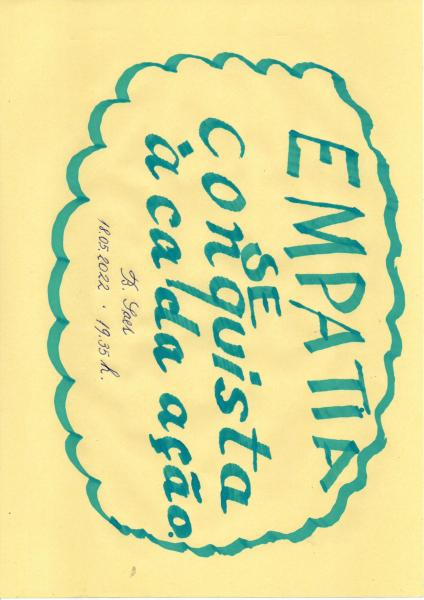 EMPATIA
SE
conquista
à cada ação.
B. Saes
18.05.2022 . 19.35 h.